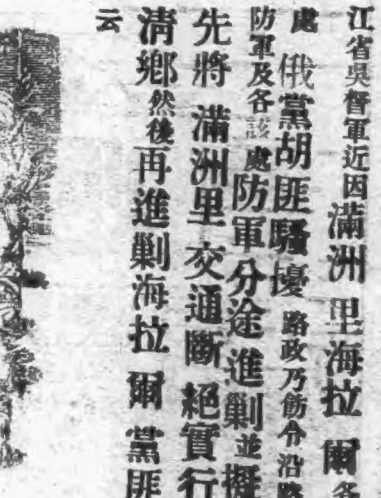 江省吳督軍近因滿洲里海拉爾各
處俄黨胡匪騷擾路政乃飭令沿路
防軍及各該處防軍分途進剿並擬
先將滿洲里交通斷絕實行
清鄉然後再進剿海拉爾黨匪
云